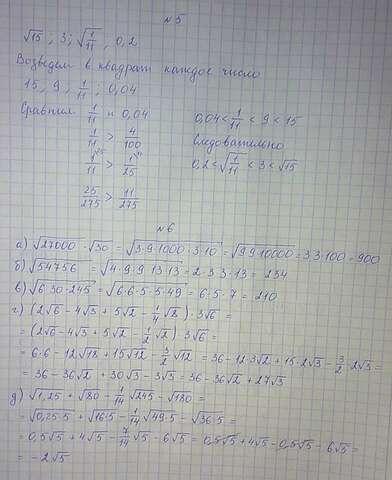 №5
√15 ; 3 ; √(1/11) , 0,2
Возведем в квадрат каждое число
15 , 9 ; 1/11 ; 0,04
Сравним 1/11 и 0,04
0,04 < 1/11 < 9 < 15
1/11 > 4/100
следовательно
1/11 > 1/25
0,2 < √(1/11) < 3 < √15
25/275 > 11/275
№6
а) √27000 · √30 = √(3·9·1000·3·10) = √(9·9·10000) = 3·3·100 = 900
б) √54756 = √(4·9·9·13·13) = 2·3·3·13 = 234
в) √(6·30·245) = √(6·6·5·5·49) = 6·5·7 = 210
г) (2√6 - 4√3 + 5√2 - 1/4 √8) · 3√6 =
= (2√6 - 4√3 + 5√2 - 1/2 √2) 3√6 =
= 6·6 - 12√18 + 15√12 - 3/2 √12 = 36 - 12·3√2 + 15·2√3 - 3/2 · 2√3 =
= 36 - 36√2 + 30√3 - 3√3 = 36 - 36√2 + 27√3
д) √1,25 + √80 - 1/14 √245 - √180 =
= √(0,25·5) + √(16·5) - 1/14 √(49·5) - √(36·5) =
= 0,5√5 + 4√5 - 7/14 √5 - 6√5 = 0,5√5 + 4√5 - 0,5√5 - 6√5 =
= -2√5